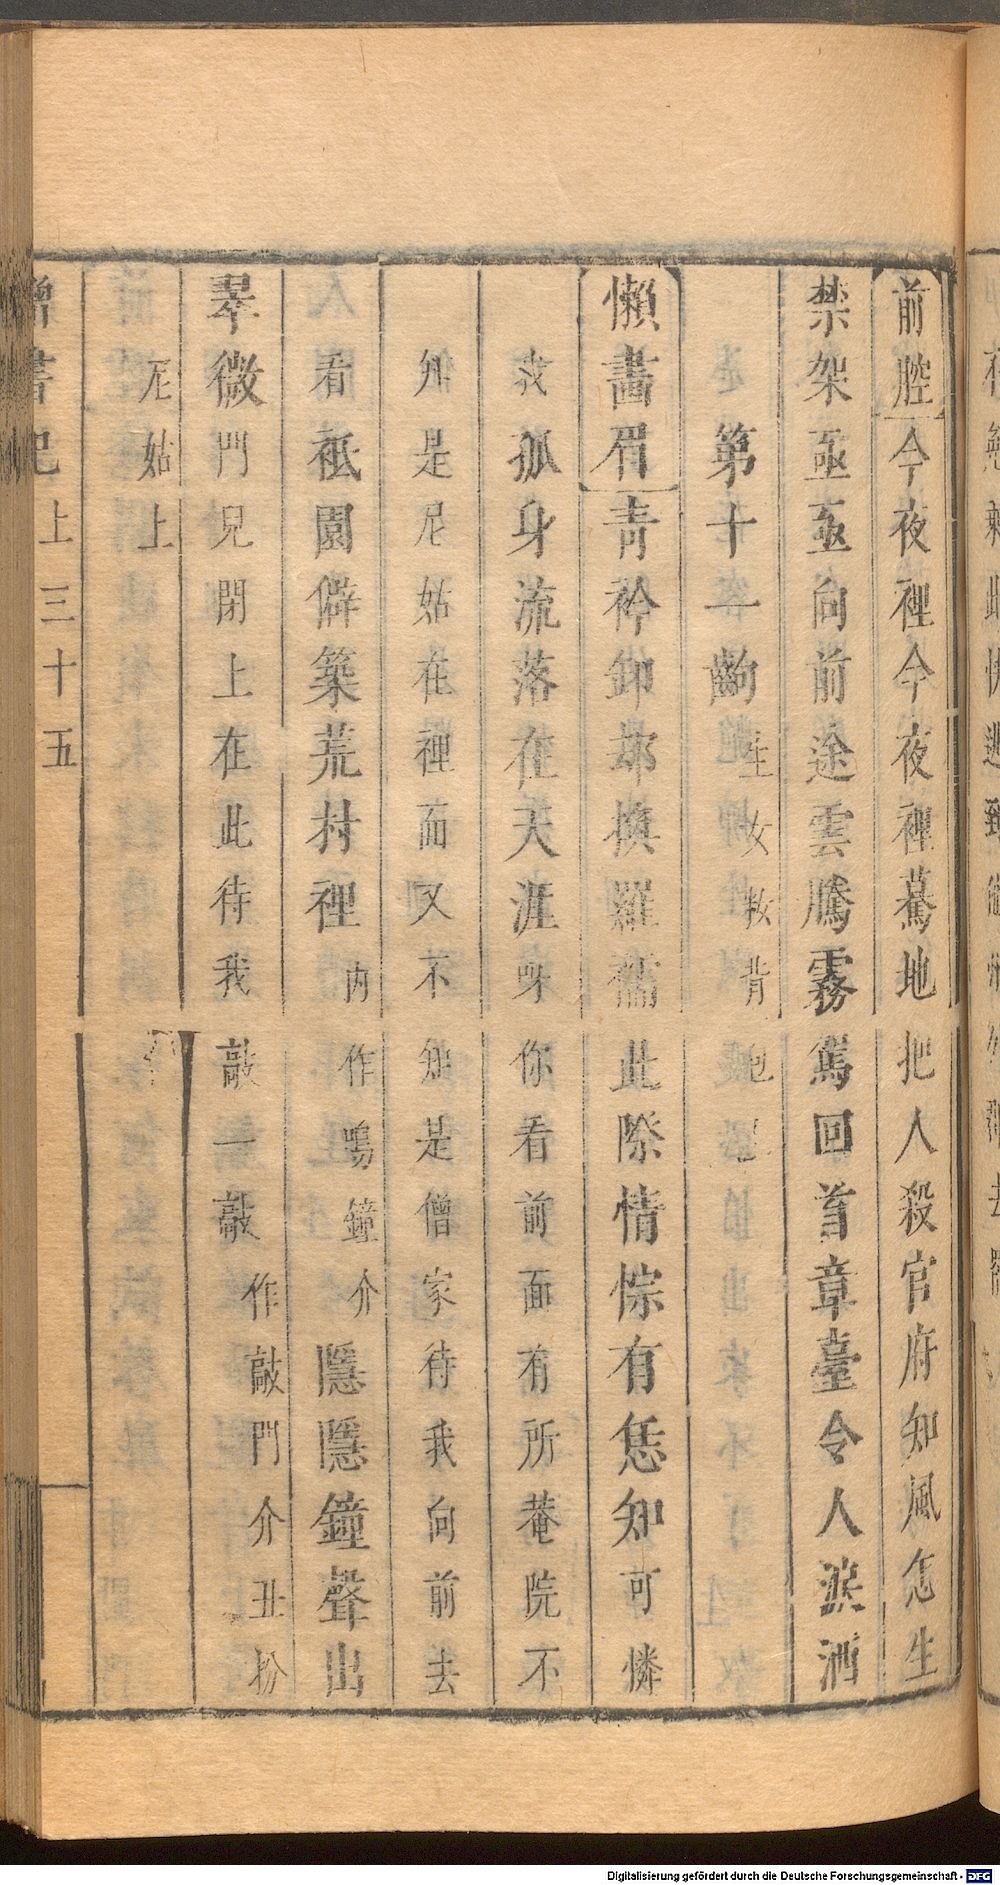 前腔今夜裡今夜裡驀地把人殺官府知風怎生
禁架亟亟向前途雲騰霧駕回首章臺令人淚洒
第十一齣生女救背包上
懶畫眉青衿卸却換羅襦此際情悰有恁知可憐
我孤身流落在天涯呀你看前面有所菴院不
知是尼姑在裡面又不知是僧家待我向前去
看祇園僻築荒村裡內作鳴鐘介隱隱鐘聲出
翠微門兒閉上在此待我敲一敲作敲門介丑扮
尼姑上
書記上三十五
Digitalisierung gefördert durch die Deutsche Forschungsgemeinschaft - DFG